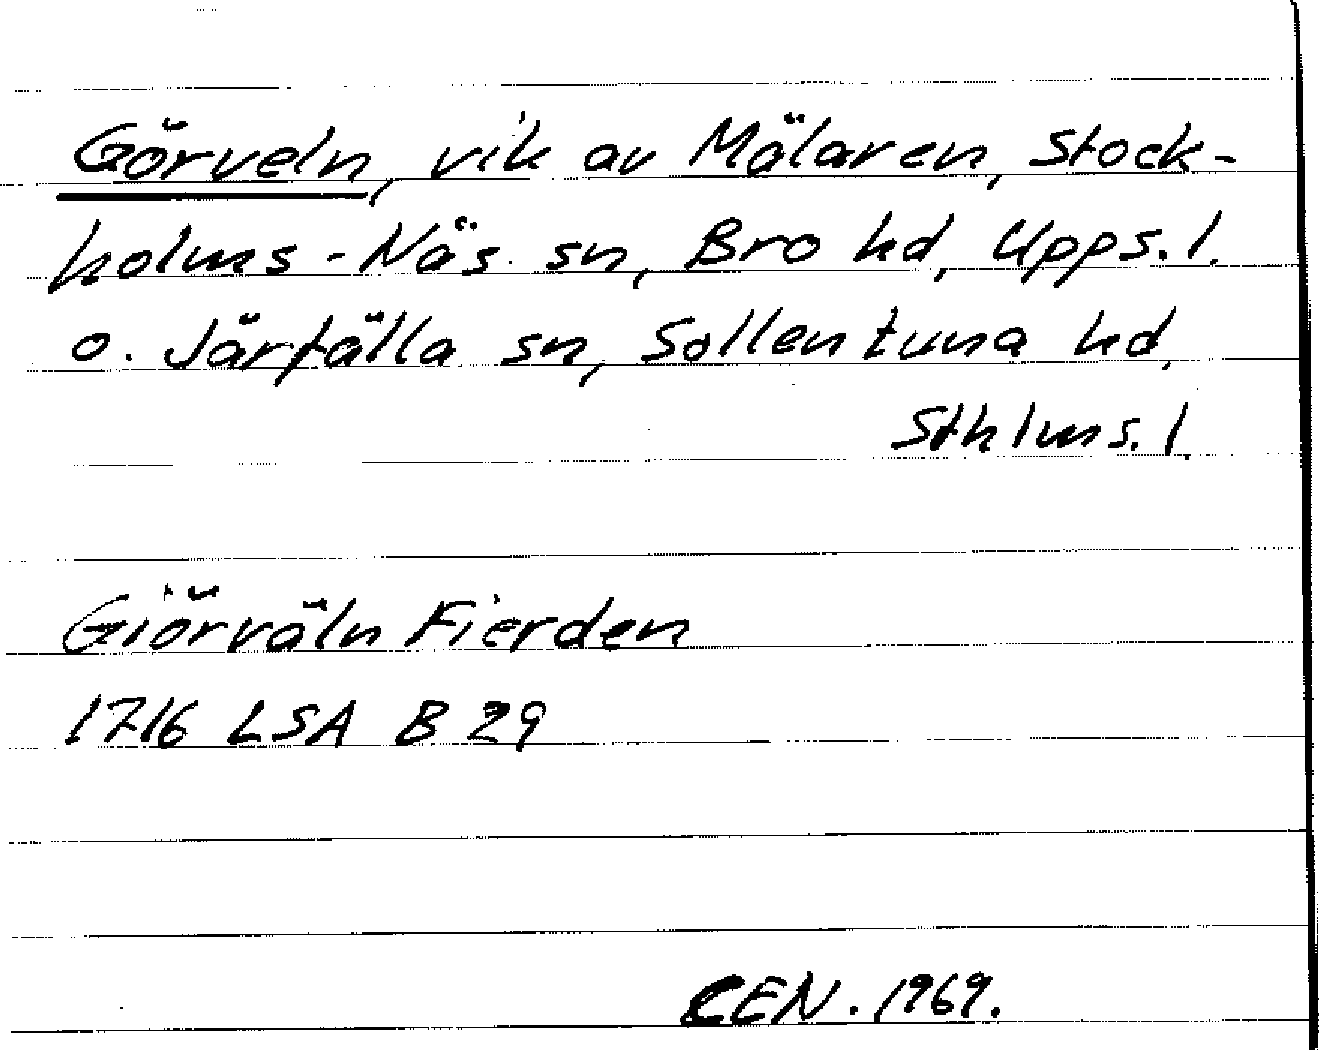 Görveln, vik av Mälaren, Stock-
holms-Näs sn, Bro hd, Upps. l.
o. Järfälla sn, Sollentuna hd,
Sthlms. l.
Giörväln Fierden
1716 LSA B 29
CEN. 1969.